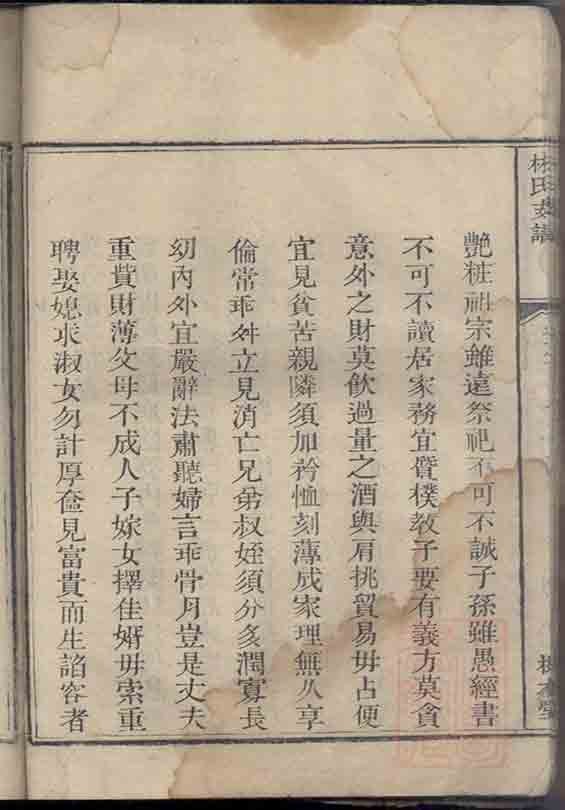 艷粧祖宗雖遠祭祀不可不誠子孫雖愚經書
不可不讀居家務宜質樸教子要有義方莫貪
意外之財莫飲過量之酒與肩挑貿易毋占便
宜見貧苦親隣須加矜恤刻薄成家理無久享
倫常乖舛立見消亡兄弟叔姪須分多潤寡長
幼內外宜嚴辭法肅聽婦言乖骨月豈是丈夫
重貲財薄父母不成人子嫁女擇佳婿毋索重
聘娶媳求淑女勿計厚奩見富貴而生諂容者